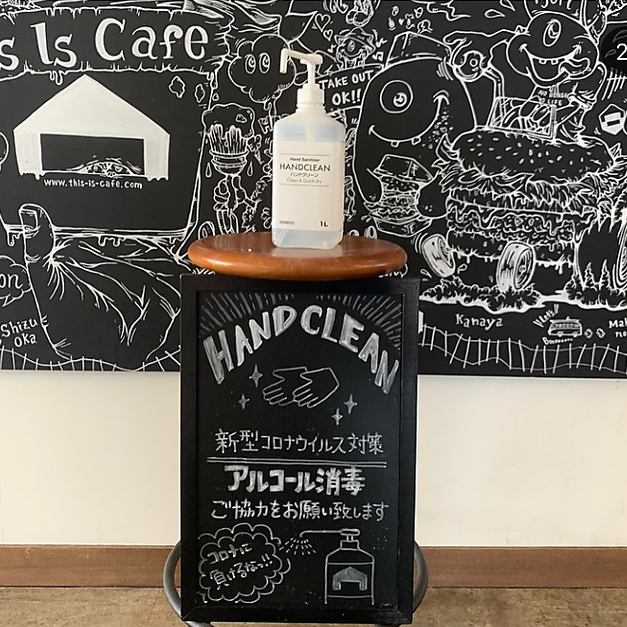 s Is Cafe
TAKE OUT
OK!!
www.this-is-cafe.com
Hand Sanitizer
HANDCLEAN
ハンドクリーン
Clean & Quick dry
1L
Shizu
oka
Kanaya
HAND CLEAN
新型コロナウイルス対策
アルコール消毒
ご協力をお願い致します
コロナに
負けるなっ!!